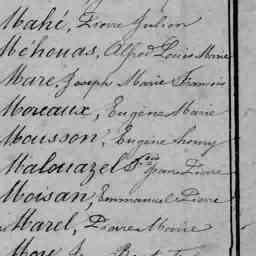 Mahé, Pierre Julien
Méhouas, Alfred Louis Marie
Mare, Joseph Marie François
Moreaux, Eugène Marie
Mousson, Eugène
Malouazel Jean Pierre
Moisan, Emmanuel Pierre
Marel, Pierre Marie